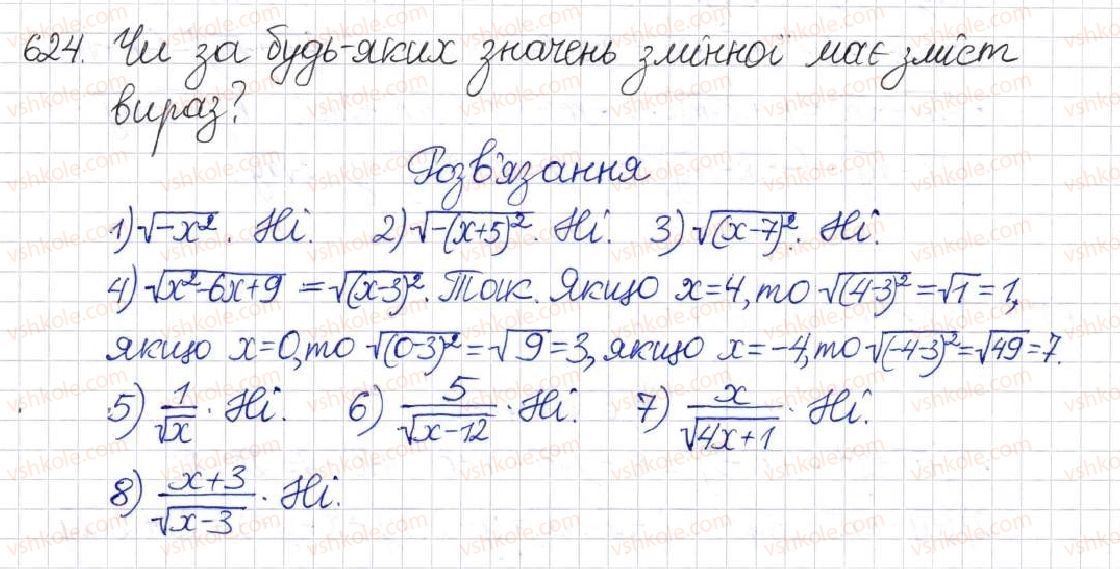 624. Чи за будь-яких значень змінної має зміст
вираз?
Розв'язання
1) √(-x²). Ні. 2) √(-(x+5)²). Ні. 3) √((x-7)²). Ні.
4) √(x²-6x+9) = √((x-3)²). Так. Якщо x=4, то √((4-3)²) = √1 = 1,
якщо x=0, то √((0-3)²) = √9 = 3, якщо x=-4, то √((-4-3)²) = √49 = 7.
5) 1/√x. Ні. 6) 5/√(x-12). Ні. 7) x/√(4x+1). Ні.
8) (x+3)/√(x-3). Ні.